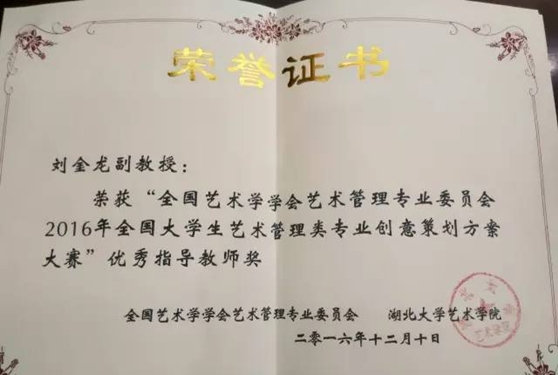 荣誉证书
刘金龙副教授：
荣获“全国艺术学学会艺术管理专业委员会
2016年全国大学生艺术管理类专业创意策划方案
大赛”优秀指导教师奖
全国艺术学学会艺术管理专业委员会 湖北大学艺术学院
二零一六年十二月十日
艺术学院